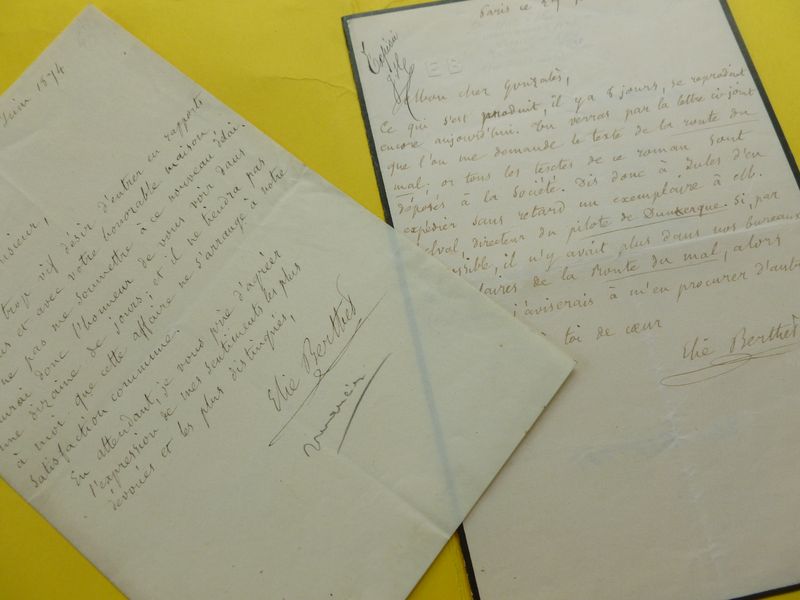 Juin 1874
Monsieur,
trop vif désir d'entrer en rapports
et avec votre honorable maison
ne pas me soumettre à ce nouveau délai.
donc l'honneur de vous voir dans
une dizaine de jours; et il ne tiendra pas
à moi que cette affaire ne s'arrange à notre
satisfaction commune.
En attendant, je vous prie d'agréer
l'expression de mes sentiments les plus
dévoués et les plus distingués,
Elie Berthet
romancier
Paris ce 29
EB
Mon cher Gonzalès,
Ce qui s'est produit, il y a 8 jours, se reproduit
encore aujourd'hui. Tu verras par la lettre ci-jointe
que l'on me demande le texte de la route du
mal; or tous les textes de ce roman sont
déposés à la Société. Dis donc à Jules d'en
expédier sans retard un exemplaire à
directeur du pilote de Dunkerque. Si, par
il n'y avait plus dans nos bureaux
de la Route du mal, alors
j'aviserais à m'en procurer d'autres
à toi de cœur
Elie Berthet